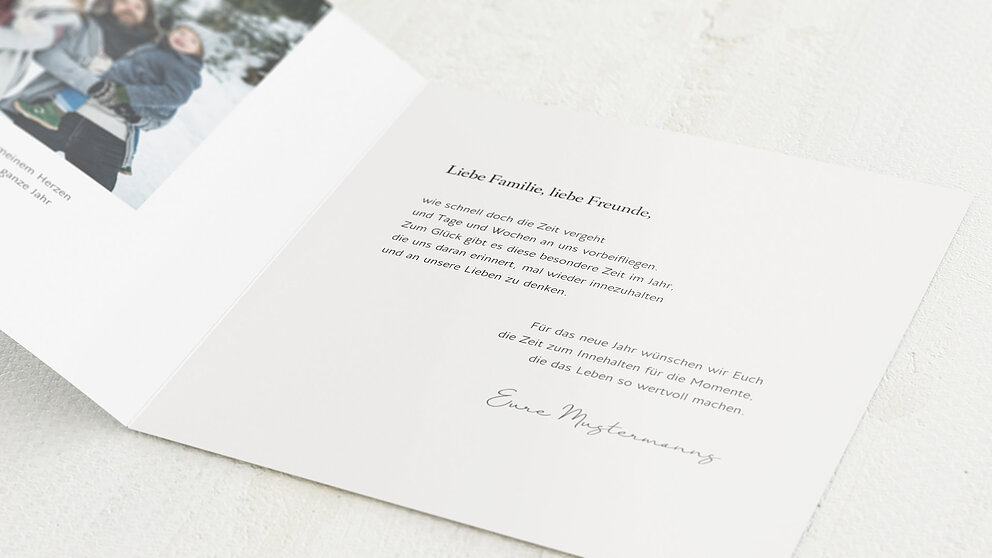 meinem Herzen
ganze Jahr
Liebe Familie, liebe Freunde,
wie schnell doch die Zeit vergeht
und Tage und Wochen an uns vorbeifliegen.
Zum Glück gibt es diese besondere Zeit im Jahr,
die uns daran erinnert, mal wieder innezuhalten
und an unsere Lieben zu denken.
Für das neue Jahr wünschen wir Euch
die Zeit zum Innehalten für die Momente,
die das Leben so wertvoll machen.
Eure Mustermanns